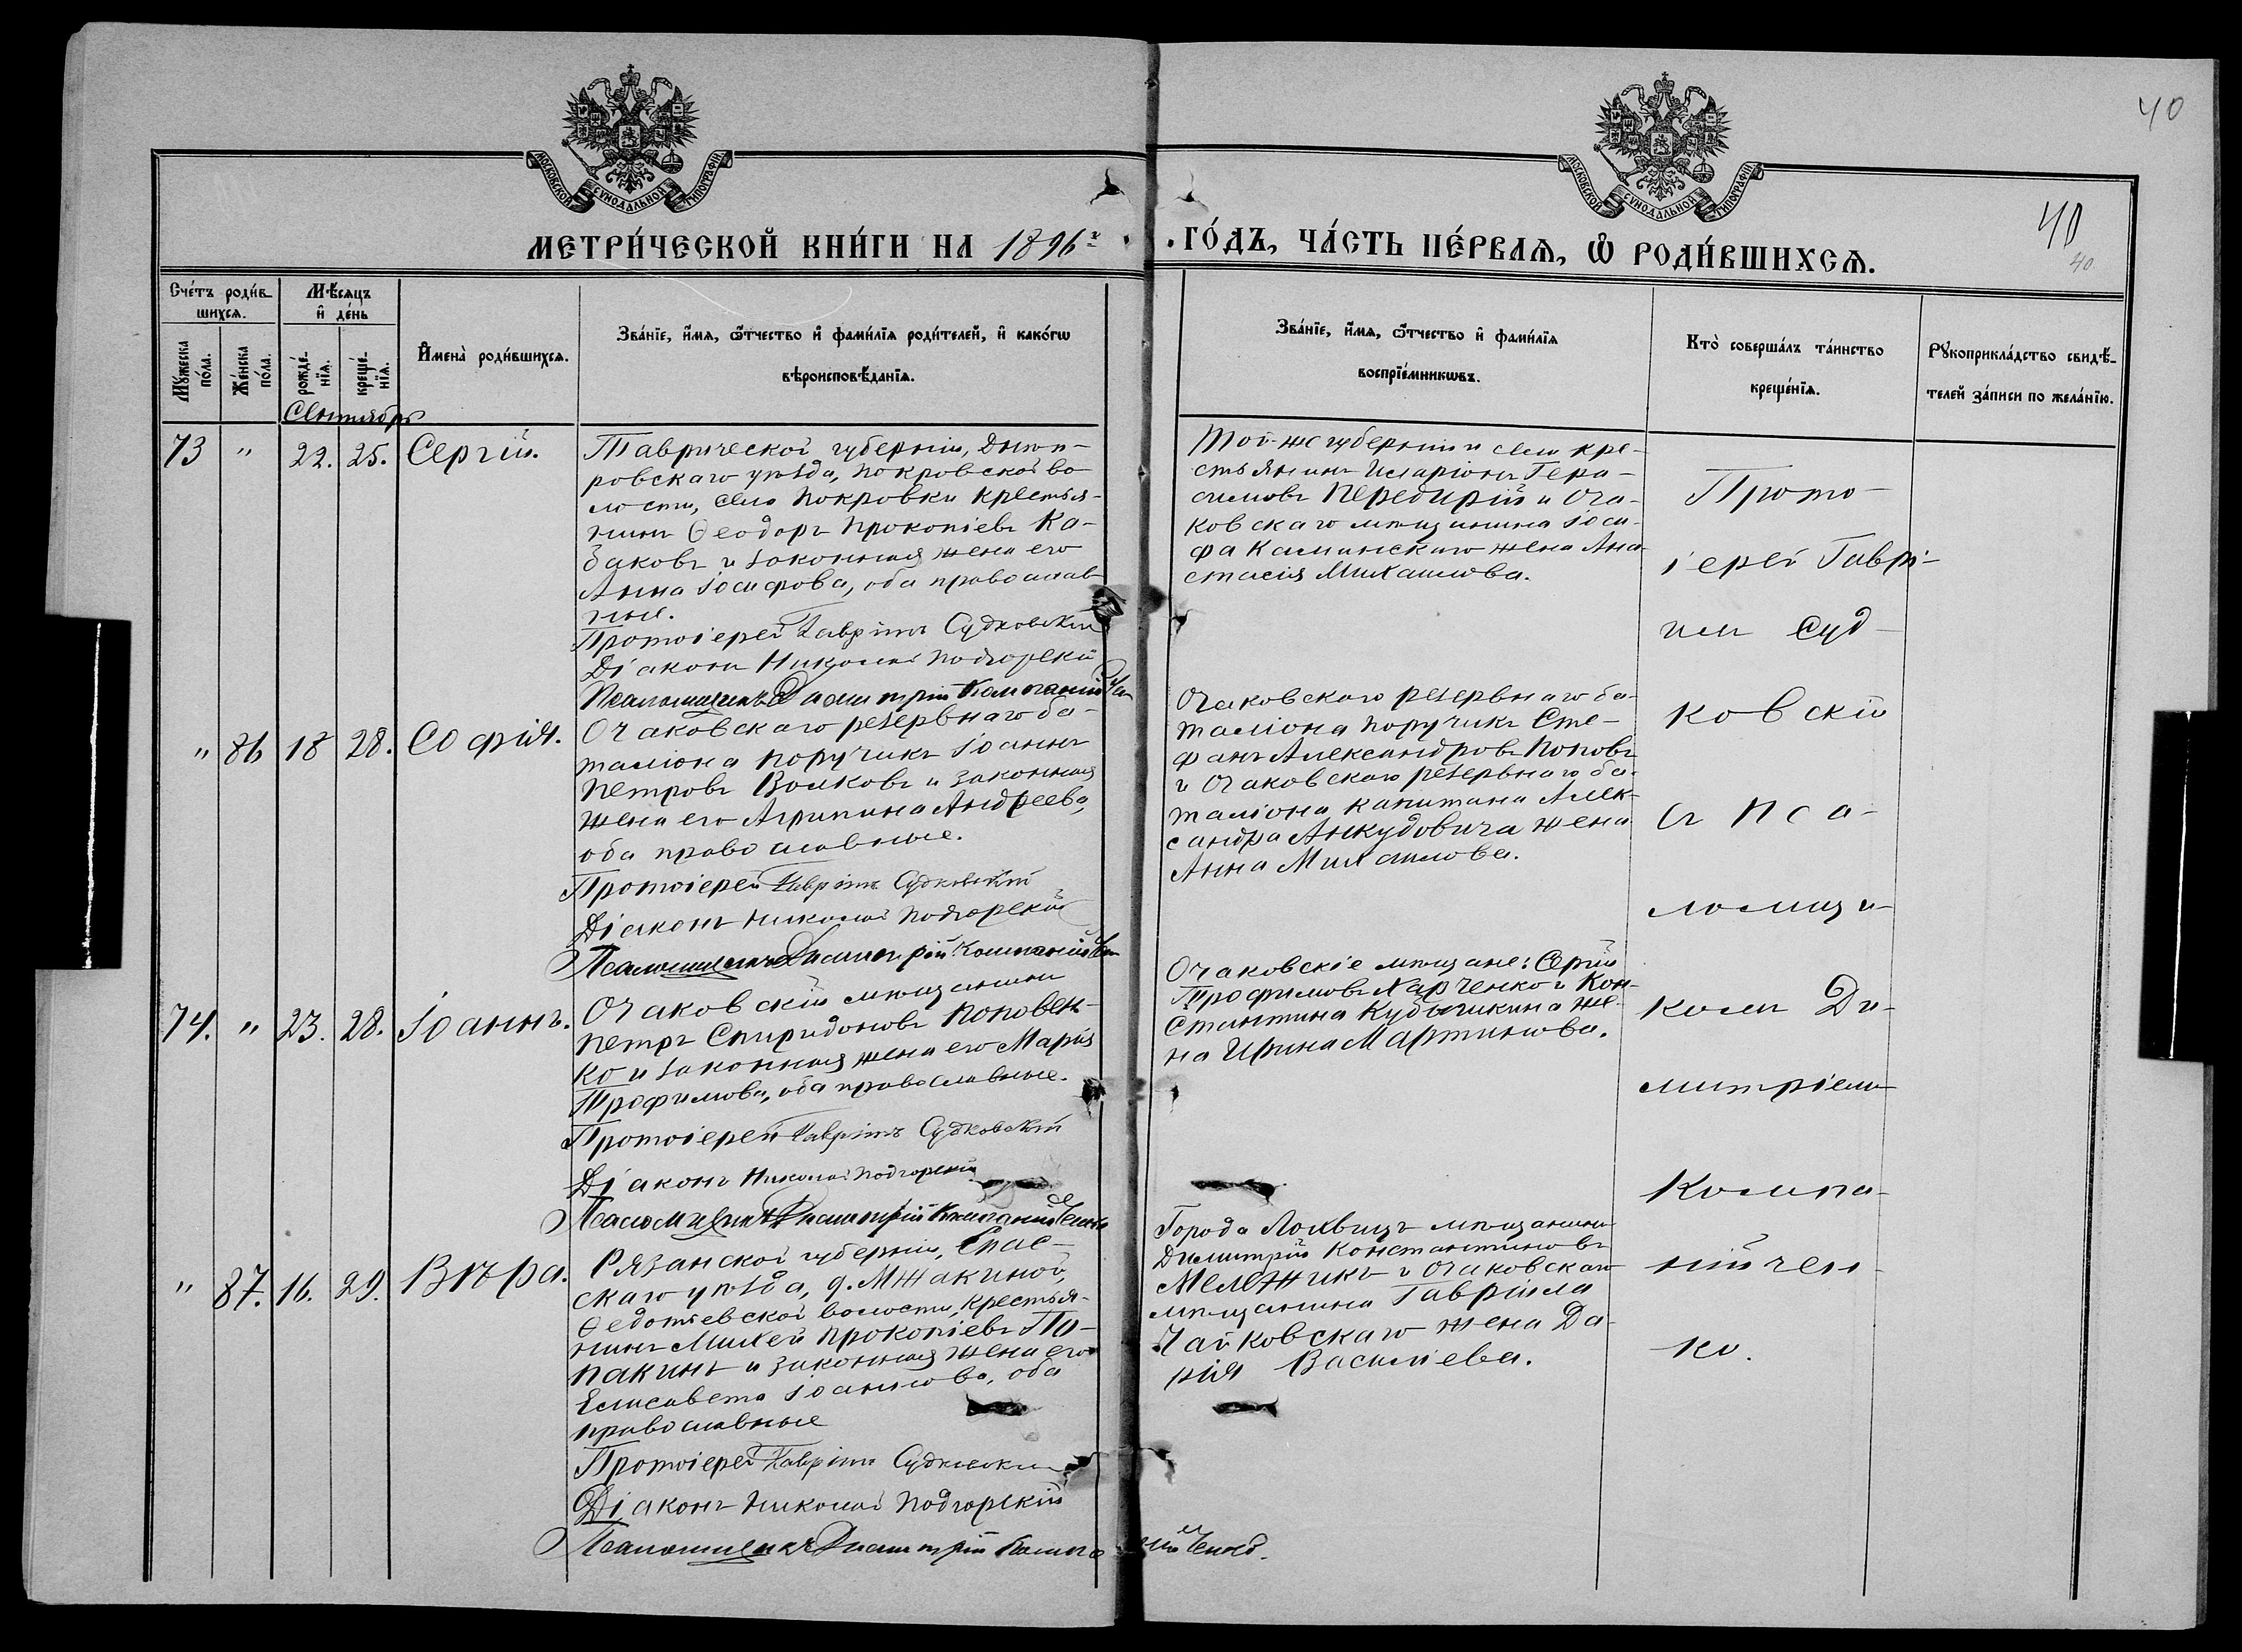 40
МОСКОВСКОЙ СѴНОДАЛЬНОЙ ТИПОГРАФІИ
МОСКОВСКОЙ СѴНОДАЛЬНОЙ ТИПОГРАФІИ
40
40
МЕТРИ́ЧЕСКОЙ КНИ́ГИ НА 1896 г. ГО́ДЪ, ЧА́СТЬ ПЕ́РВАЯ, Ѡ҆ РОДИ́ВШИХСЯ.
Сче́тъ роди́в-
шихся.
Мѣ́сяцъ
и҆ де́нь
Му́жеска по́ла.
Же́нска по́ла.
рожде́-
нїя.
креще́-
нїя.
И҆мена̀ роди́вшихся.
Зва́нїе, и҆́мя, ѻ҆́тчество и҆ фами́лїя роди́телей, и҆ како́гѡ
вѣроисповѣ́данїя.
Зва́нїе, и҆́мя, ѻ҆́тчество и҆ фами́лїя
воспрїе́мникѡвъ.
Кто̀ соверша́лъ та́инство
креще́нїя.
Рꙋкоприкла́дство свидѣ́-
телей за́писи по жела́нїю.
Сентябрь
73 " 22. 25. Сергій.
Таврической губерніи, Днѣп-
ровскаго уѣзда, Покровской во
лости, села Покровки крестья-
нинъ Ѳеодоръ Прокопіевъ Ка-
заковъ и законная жена его
Анна Іосифова, оба православ
ные.
Протоіерей Гавріилъ Судковскій
Діаконъ Николай Подгорскій
Псаломщикъ Димитрій Компанійче
Той-же губерніи и села кре-
стьянинъ Иларіонъ Гера-
симовъ Перебирій и Оча-
ковскаго мѣщанина Іоси-
фа Каминскаго жена Ана
стасія Михаилова.
" 86 18 28. Софія.
Очаковскаго резервнаго ба-
таліона поручикъ Іоаннъ
Петровъ Волковъ и законная
жена его Агрипина Андреева,
оба православные.
Протоіерей Гавріилъ Судковскій
Діаконъ Николай Подгорскій
Псаломщикъ Димитрій Компанійчен
Очаковскаго резервнаго ба-
таліона поручикъ Сте-
фанъ Александровъ Поповъ
и Очаковскаго резервнаго ба-
таліона капитана Алек-
сандра Анкудовича жена
Анна Михаилова.
74. " 23. 28. Іоаннъ.
Очаковскій мѣщанинъ
Петръ Спиридоновъ Поповен-
ко и законная жена его Марія
Трофимова, оба православные.
Протоіерей Гавріилъ Судковскій
Діаконъ Николай Подгорскій
Псаломщикъ Димитрій Компанійченко
Очаковскіе мѣщане: Сергій
Трофимовъ Харченко и Кон-
стантина Кубышкина же-
на Ирина Мартинова.
" 87. 16. 29. Вѣра.
Рязанской губерніи, Спас-
скаго уѣзда, д. Мжакиной,
Ѳедотьевской волости, крестья-
нинъ Михей Прокопіевъ По-
пакинъ и законная жена его
Елисавета Іоаннова, оба
православные
Протоіерей Гавріилъ Судковскій
Діаконъ Николай Подгорскій
Псаломщикъ Димитрій Компанійченко.
Города Лохвицъ мѣщанинъ
Димитрій Константиновъ
Мележикъ и Очаковскаго
мѣщанина Гавріила
Чайковскаго жена Да-
рія Василіева.
Прото-
іерей Гаврі-
илъ Суд-
ковскій
съ Пса-
ломщи-
комъ Ди-
митріемъ
Компа-
нійчен-
ко.